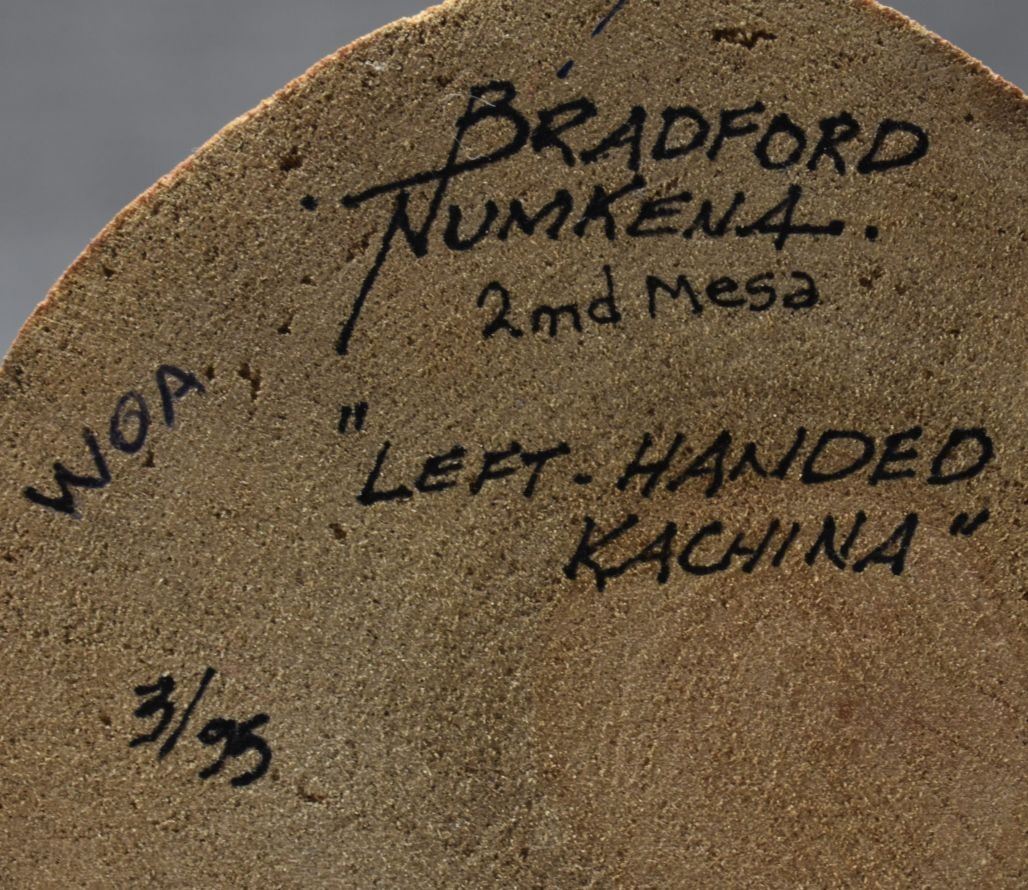 BRADFORD
NUMKENA.
2md Mesa
WOA
"LEFT-HANDED
KACHINA"
3/95